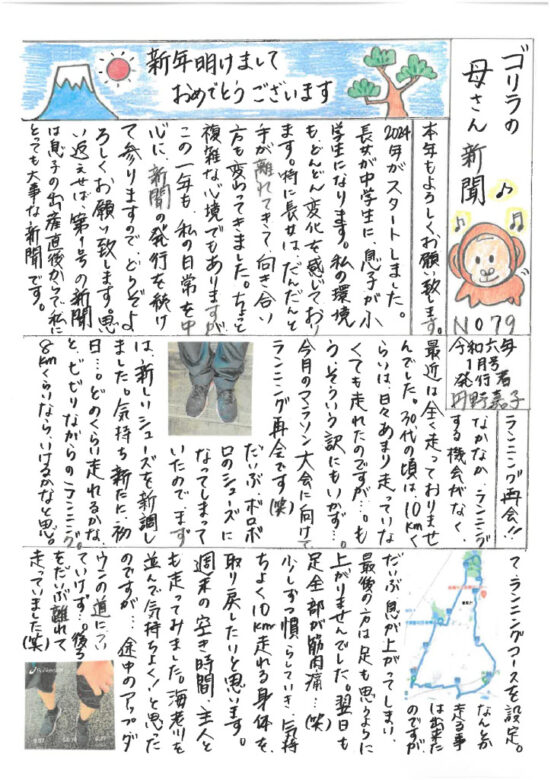 ゴリラの
母さん新聞
NO79
令和六年
1月号
発行者
新年明けまして
おめでとうございます
本年もよろしくお願い致します。
2024年がスタートしました。
長女が中学生に、息子が小
学生になります。私の環境
も、どんどん変化を感じており
ます。特に長女は、だんだんと
手が離れてきて、向き合い
方も変わってきました。ちょっと
複雑な心境でもありますが、
この一年も、私の日常を中
心に、新聞の発行を続け
て参りますので、どうぞよ
ろしくお願い致します。思
い返えせば、第1号の新聞
は息子の出産直後からで、私に
とっても大事な新聞です。
ランニング再会!!
なかなか、ランニング
する機会がなく、
最近は全く走っておりませ
んでした。30代の頃は、10kmく
らいは、日々あまり走っていな
くても走れたのですが…。も
う、そういう訳にもいかず…。
今月のマラソン大会に向けて
ランニング再会です(笑)
だいぶ、ボロボ
ロのシューズに
なってしまって
いたので、まず
は、新しいシューズを新調し
ました。気持ち新たに、初
日…。どのくらい走れるかな、
と、ビビりながらのランニング。
8kmくらいなら、いけるかなと思っ
て、ランニングコースを設定。
なんとか
走る事
は出来た
のですが、
だいぶ、息が上がってしまい、
最後の方は足も思うように
上がりませんでした。翌日も
足全部が筋肉痛…(笑)
少しずつ慣らしていき、気持
ちよく10km走れる身体を、
取り戻したいと思います。
週末の空き時間、主人と
も走ってみました。海老川を
並んで気持ちよく!と思った
のですが…途中のアップダ
ウンの道につい
ていけず…。後ろ
をだいぶ離れて
走っていました(笑)